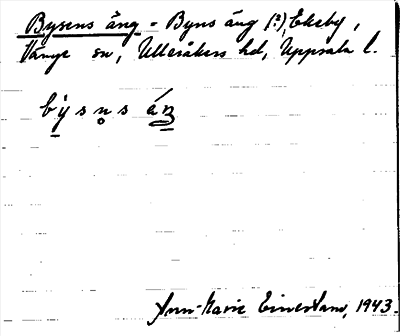 Bysens äng - Byns äng (?), Ekeby,
Vänge sn, Ulleråkers hd, Uppsala l.
bysns äŋ
Ann-Marie 1943.